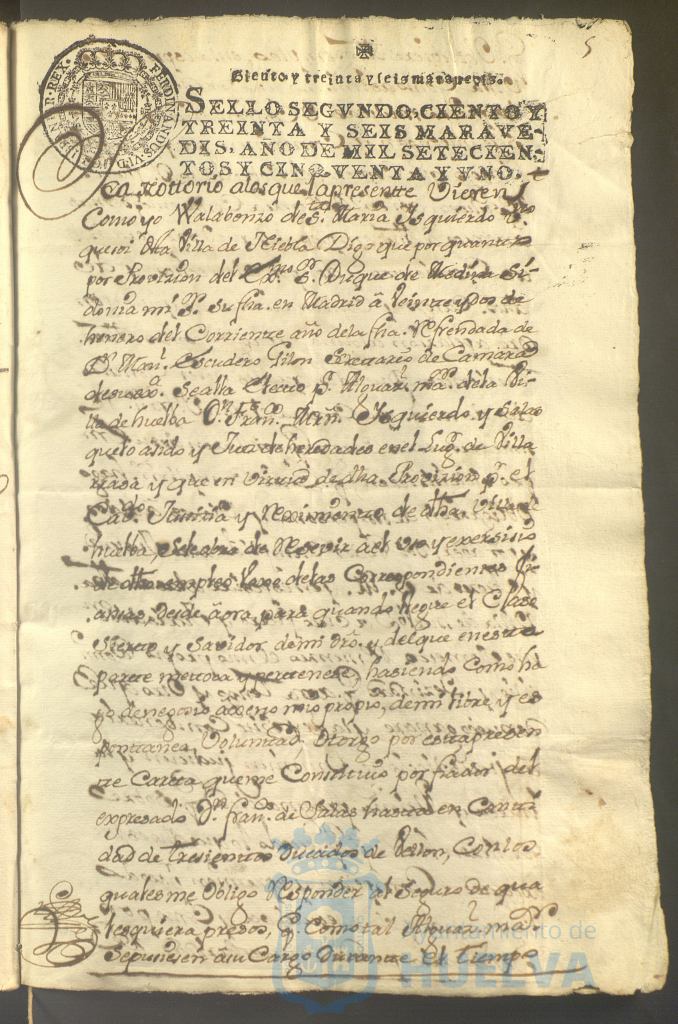 5
Ciento y treinta y seis maravedis.
SELLO SEGVNDO, CIENTO Y
TREINTA Y SEIS MARAVE-
DIS, AÑO DE MIL SETECIEN-
TOS Y CINQVENTA Y VNO.
FERDINANDUS VI D. G. REX
Sea Nottorio alos que la presentte Vieren
Como yo Walabonzo de S.ta Maria Ysquierdo
que soi desta Villa de Niebla Digo que por quantto
por Provision del Ex.mo S.r Duque de Medina Si-
donia mi S.r su fha. en Madrid â Veintte y dos de
henero del Corrientte año dela fha. Refrendada de
D.n Man.l Escudero Gilon Secretario de Camara
de su ex.a se alla Electo p.r Alguazil ma.or dela Vi-
lla de huelba D.n Fran.co Ysquierdo y Salas
que lo a sido y Juez de heredades en el Lug.r de Villa
rrasa y que en Virtud de dha. Provision p.r el
Cav.do Justtizia y Reximientto de dha. Villa de
huelba, se le abra de Resevir â el uso y exersisio
de dho. empleo baxo delas Correspondienttes fi-
anzas, desde âora para quando llegue el Caso
Sierto y Savidor de mi dro. y del que en estta
partte me toca y pertenese, hasiendo como ha
go de negosio ageno mio propio, de mi libre, y es
ponttanea Voluntad, Otorgo por estta presen
tte Cartta que me Consttituio por fiador del
expresado D.n fran.co de Salas hastta en Canti
dad de tresienttos Ducados de Vellon, Con los
quales me Obligo Responder al Seguro de qua
lesquiera presos, q. Como tal Alguaz.l ma.or
Se pusiesen â su Cargo Durantte El tiempo
Ayuntamiento de
HUELVA